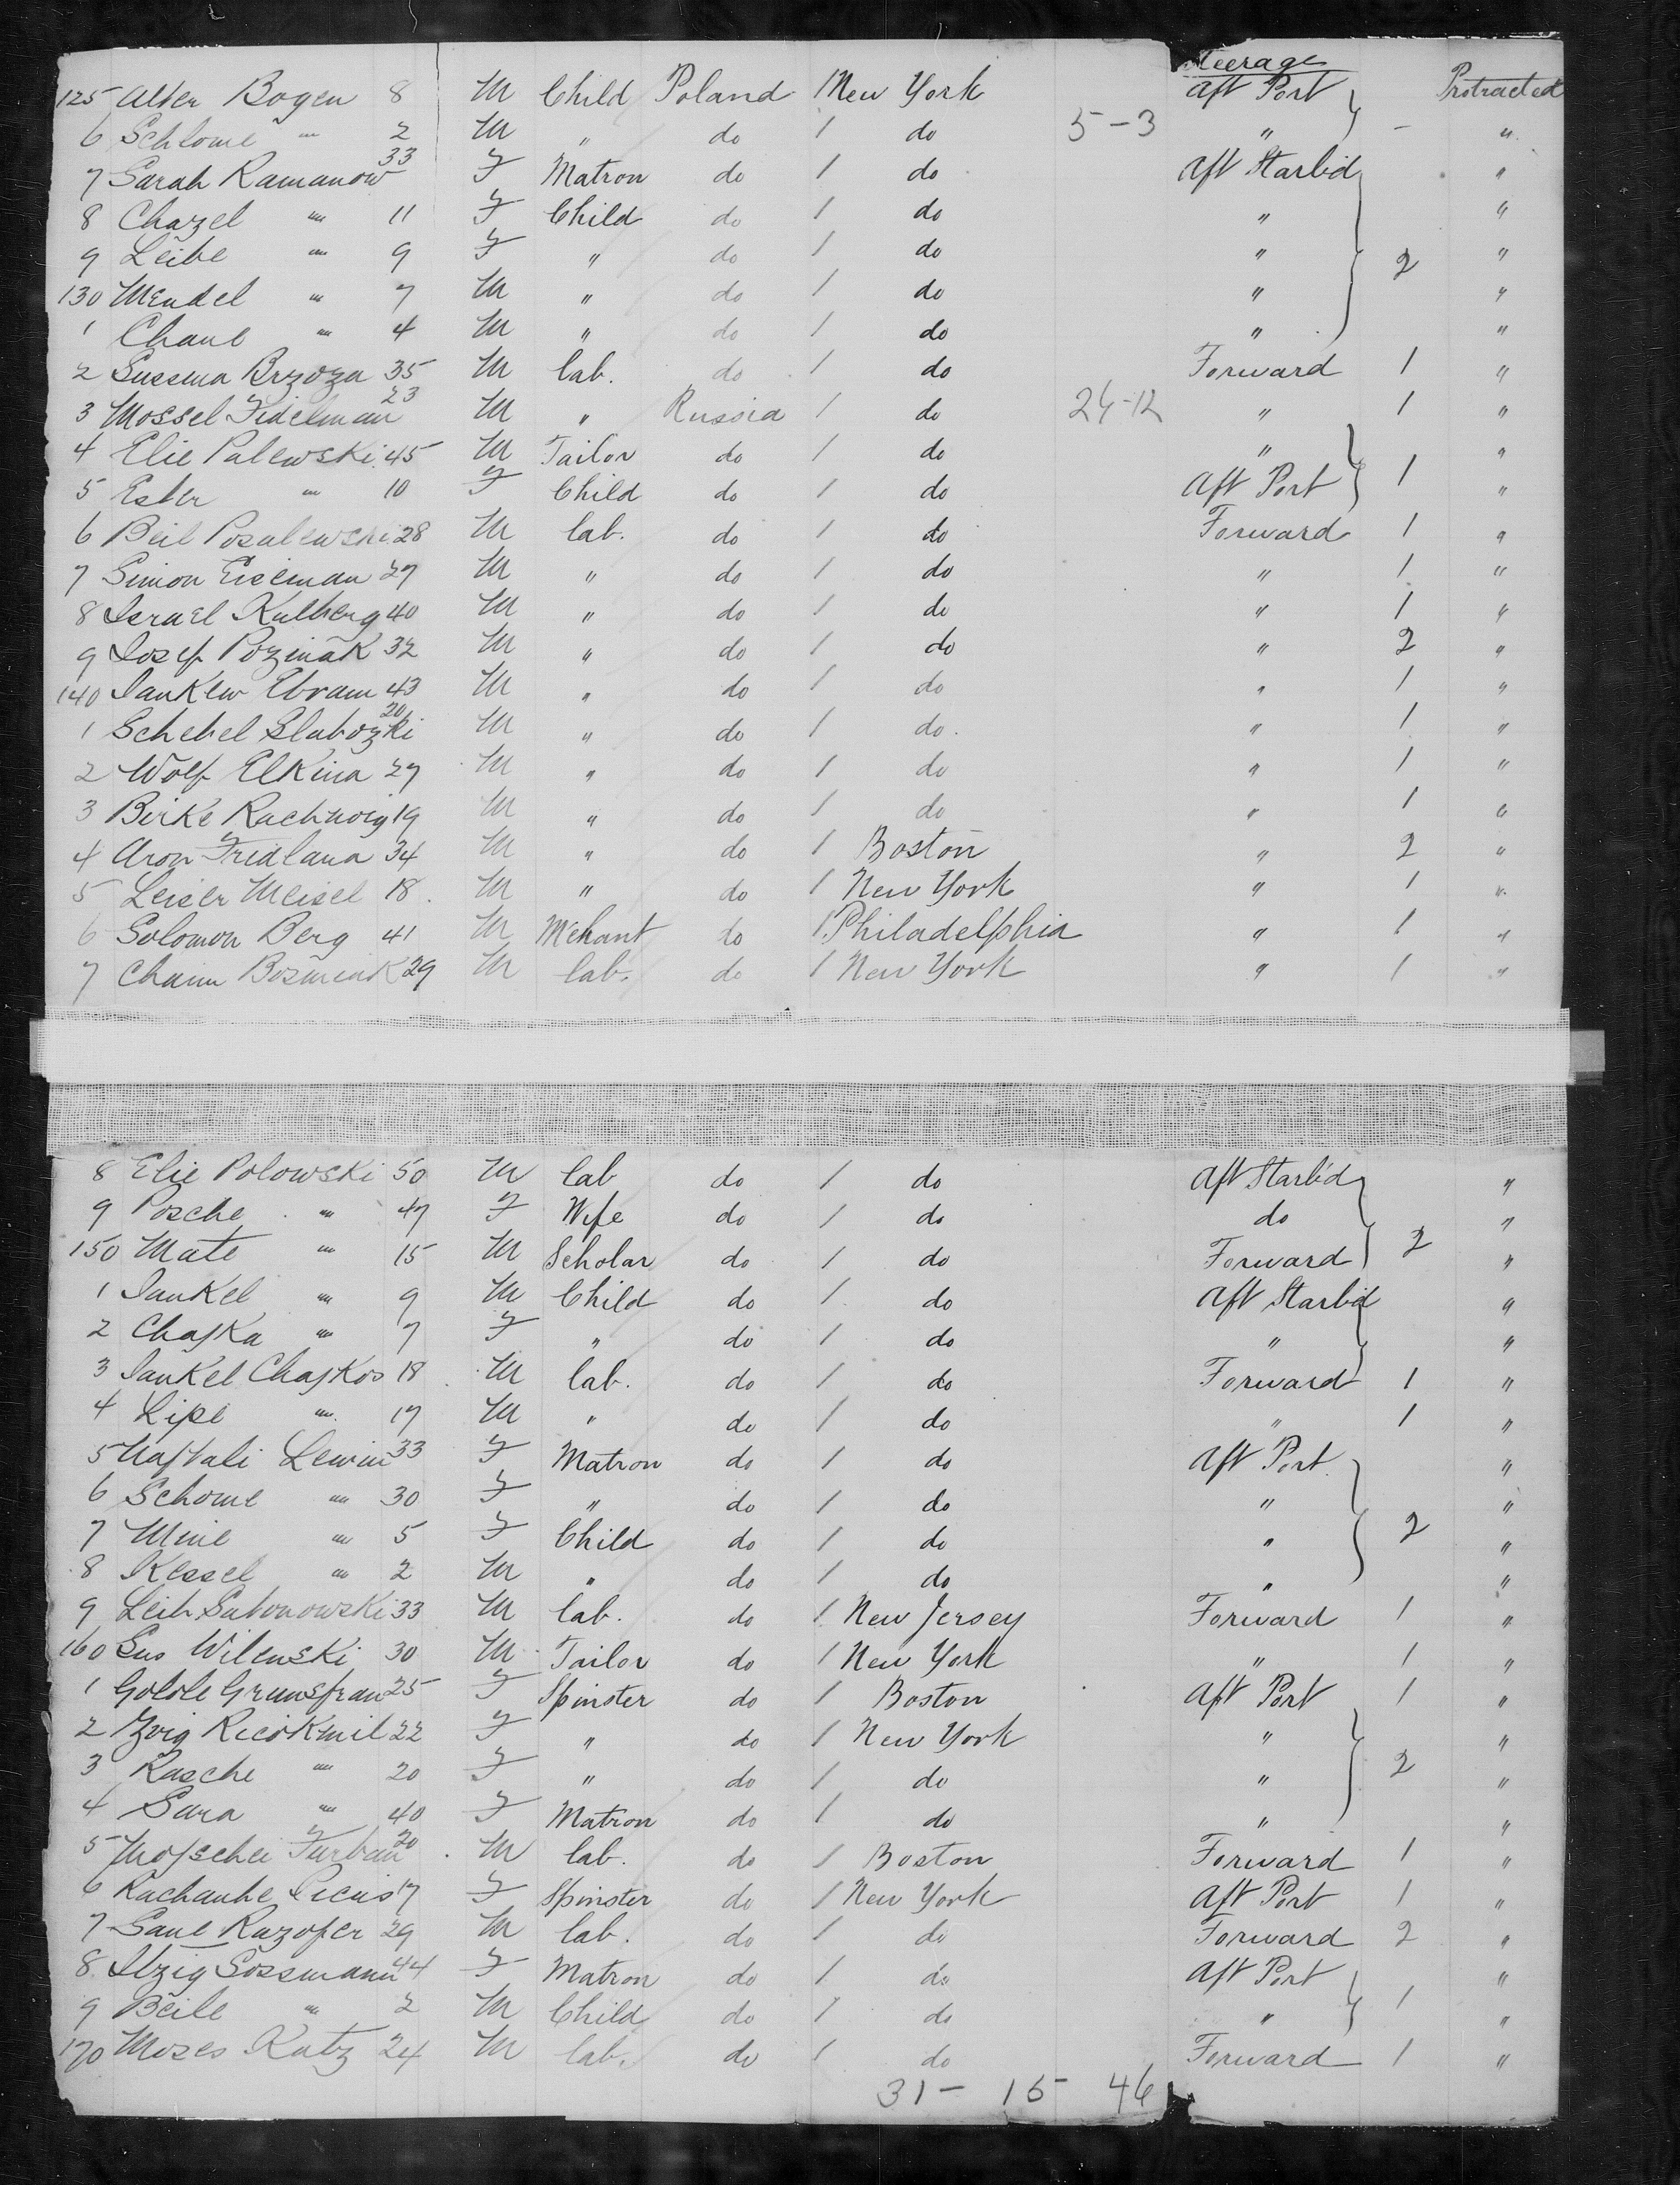 Steerage
125 Alter Bogen 8 M Child Poland 1 New York Aft Port Protracted
6 Schlome " 2 M " do 1 do 5-3 " - "
7 Sarah Ramanow 33 F Matron do 1 do Aft Starb'd "
8 Chazel " 11 F Child do 1 do " "
9 Leibe " 9 F " do 1 do " 2 "
130 Mendel " 7 M " do 1 do " "
1 Chane " 4 M " do 1 do " "
2 Sussma Brzoza 35 M Lab. do 1 do Forward 1 "
3 Mossel Fidelman 23 M " Russia 1 do 24-12 " 1 "
4 Elie Palewski 45 M Tailor do 1 do " "
5 Ester " 10 F Child do 1 do Aft Port 1 "
6 Beil Posalewski 28 M Lab. do 1 do Forward 1 "
7 Simon Eiseman 27 M " do 1 do " 1 "
8 Israel Kulberg 40 M " do 1 do " 1 "
9 Josef Pozinak 32 M " do 1 do " 2 "
140 Jankew Ebram 43 M " do 1 do " 1 "
1 Schebel Slabozki 20 M " do 1 do " 1 "
2 Wolf Elkina 27 M " do 1 do " 1 "
3 Birke Rachwig 19 M " do 1 do " 1 "
4 Aron Fridlana 34 M " do 1 Boston " 2 "
5 Leiser Meisel 18 M " do 1 New York " 1 "
6 Solomon Berg 41 M Mchant do 1 Philadelphia " 1 "
7 Chaim Bosminik 29 M Lab. do 1 New York " 1 "
8 Elie Polowski 50 M Lab do 1 do Aft Starb'd "
9 Posche " 47 F Wife do 1 do do "
150 Mate " 15 M Scholar do 1 do Forward 2 "
1 Jankel " 9 M Child do 1 do Aft Starb'd "
2 Chajka " 7 F " do 1 do " "
3 Jankel Chajkos 18 M Lab. do 1 do Forward 1 "
4 Lipe " 17 M " do 1 do " 1 "
5 Naftali Lewin 33 F Matron do 1 do Aft Port "
6 Schome " 30 F " do 1 do " "
7 Mine " 5 F Child do 1 do " 2 "
8 Kessel " 2 M " do 1 do " "
9 Leib Sabonowski 33 M Lab. do 1 New Jersey Forward 1 "
160 Sus Wilenski 30 M Tailor do 1 New York " 1 "
1 Golole Grunsfrau 25 F Spinster do 1 Boston Aft Port 1 "
2 Zvig Recokmil 22 F " do 1 New York " "
3 Rasche " 20 F " do 1 do " 2 "
4 Sara " 40 F Matron do 1 do " "
5 Mofschei Furban 20 M Lab. do 1 Boston Forward 1 "
6 Rachanhe Picus 17 F Spinster do 1 New York Aft Port 1 "
7 Saul Razofer 29 M Lab. do 1 do Forward 2 "
8 Itzig Sossmann 44 F Matron do 1 do Aft Port "
9 Beile " 2 M Child do 1 do " 1 "
170 Moses Katz 24 M Lab. do 1 do Forward 1 "
31- 15 46